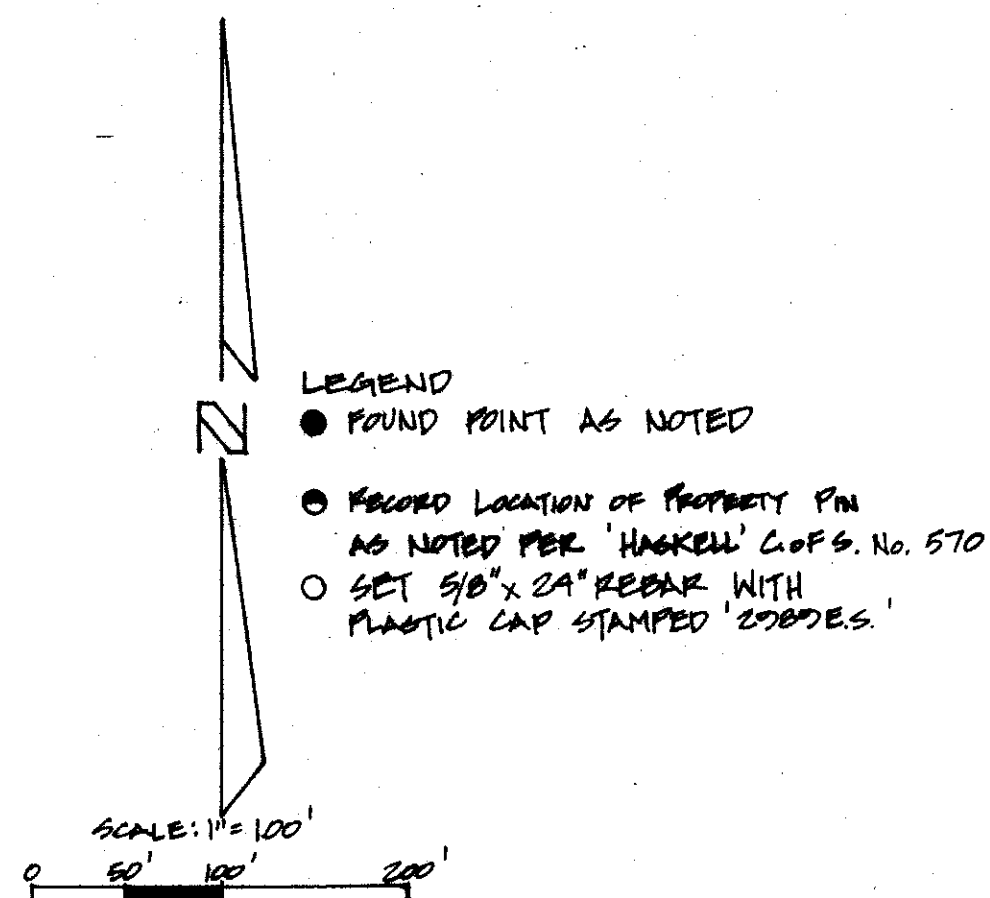 LEGEND
N
FOUND POINT AS NOTED
RECORD LOCATION OF PROPERTY PIN
AS NOTED PER 'HASKELL' C.OF S. No. 570
SET 5/8" x 24" REBAR WITH
PLASTIC CAP STAMPED '2989E.S.'
SCALE: 1" = 100'
0 50' 100' 200'